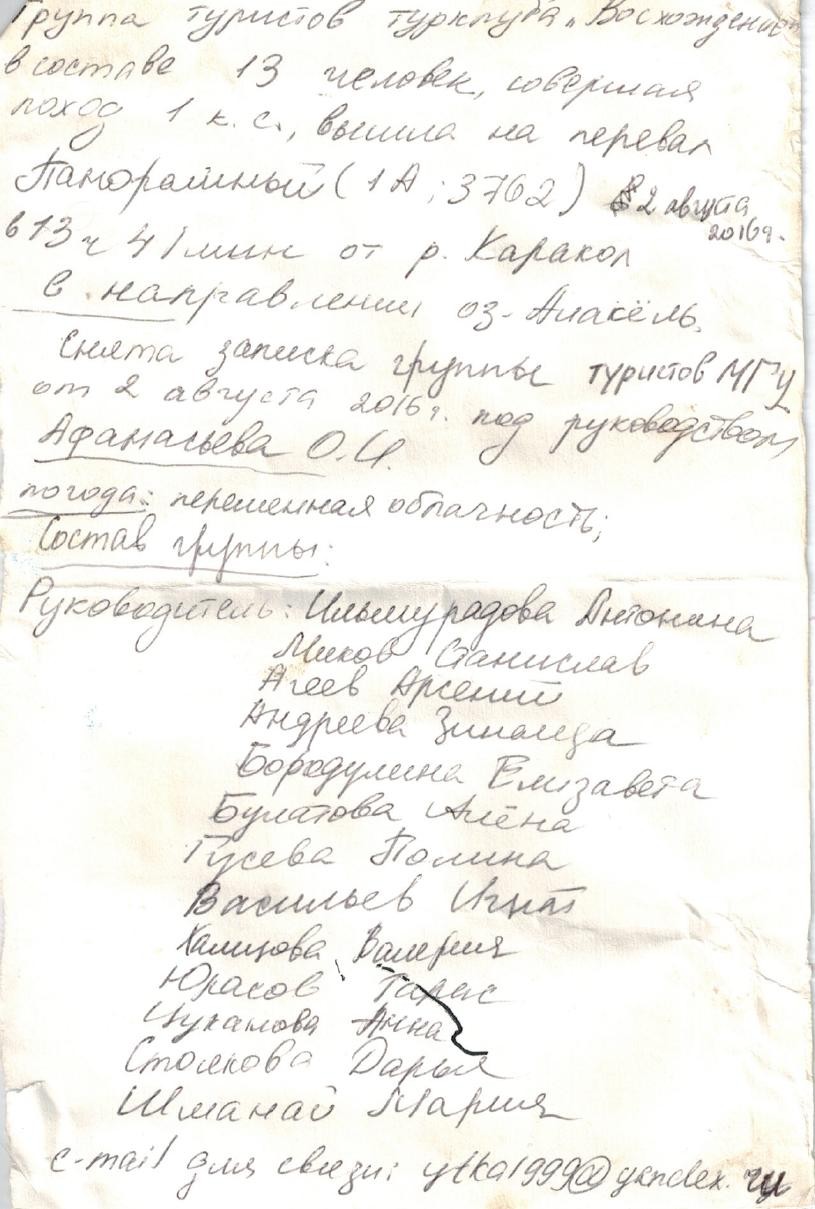 Группа туристов турклуба "Восхождение"
в составе 13 человек, совершая
поход 1 к.с., вышла на перевал
Панорамный (1А; 3762) 2 августа
2016г.
в 13ч 41мин от р. Каракол
в направлении оз. Алакёль.
Снята записка группы туристов МГУ
от 2 августа 2016г. под руководством
Афанасьева О.И.
погода: переменная облачность;
Состав группы:
Руководитель: Ильмурадова Антонина
Миков Станислав
Агеев Арсений
Андреева Зинаида
Бородулина Елизавета
Булатова Алёна
Гусева Полина
Васильев Игнат
Валерия
Юрасов Тарас
Цуканова Анна
Стоякова Дарья
Шманай Мария
e-mail для связи: ytka1999@yandex.ru